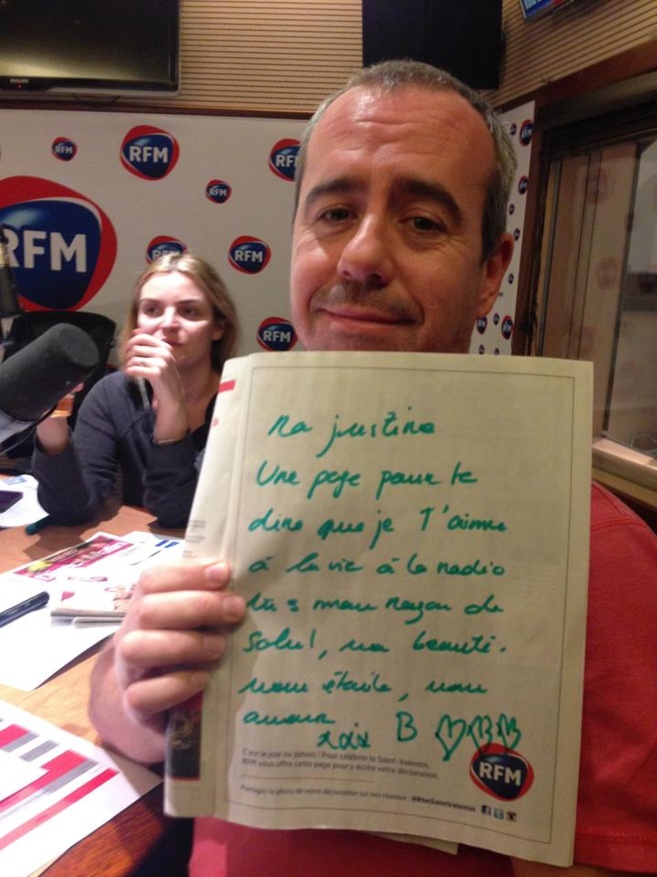 PHILIPS
RFM
RFM
RFM
RFM
RFM
RFM
RFM
RFM
RFM
Ma justine
Une page pour te
dire que je T'aime
à la vie à la radio
tu s mon rayon de
soleil, ma beauté.
mon étoile, mon
amour
B
C'est le jour ou jamais ! Pour célébrer la Saint-Valentin,
RFM vous offre cette page pour y écrire votre déclaration.
Partagez la photo de votre déclaration sur nos réseaux : #RfmSaintValentin
RFM